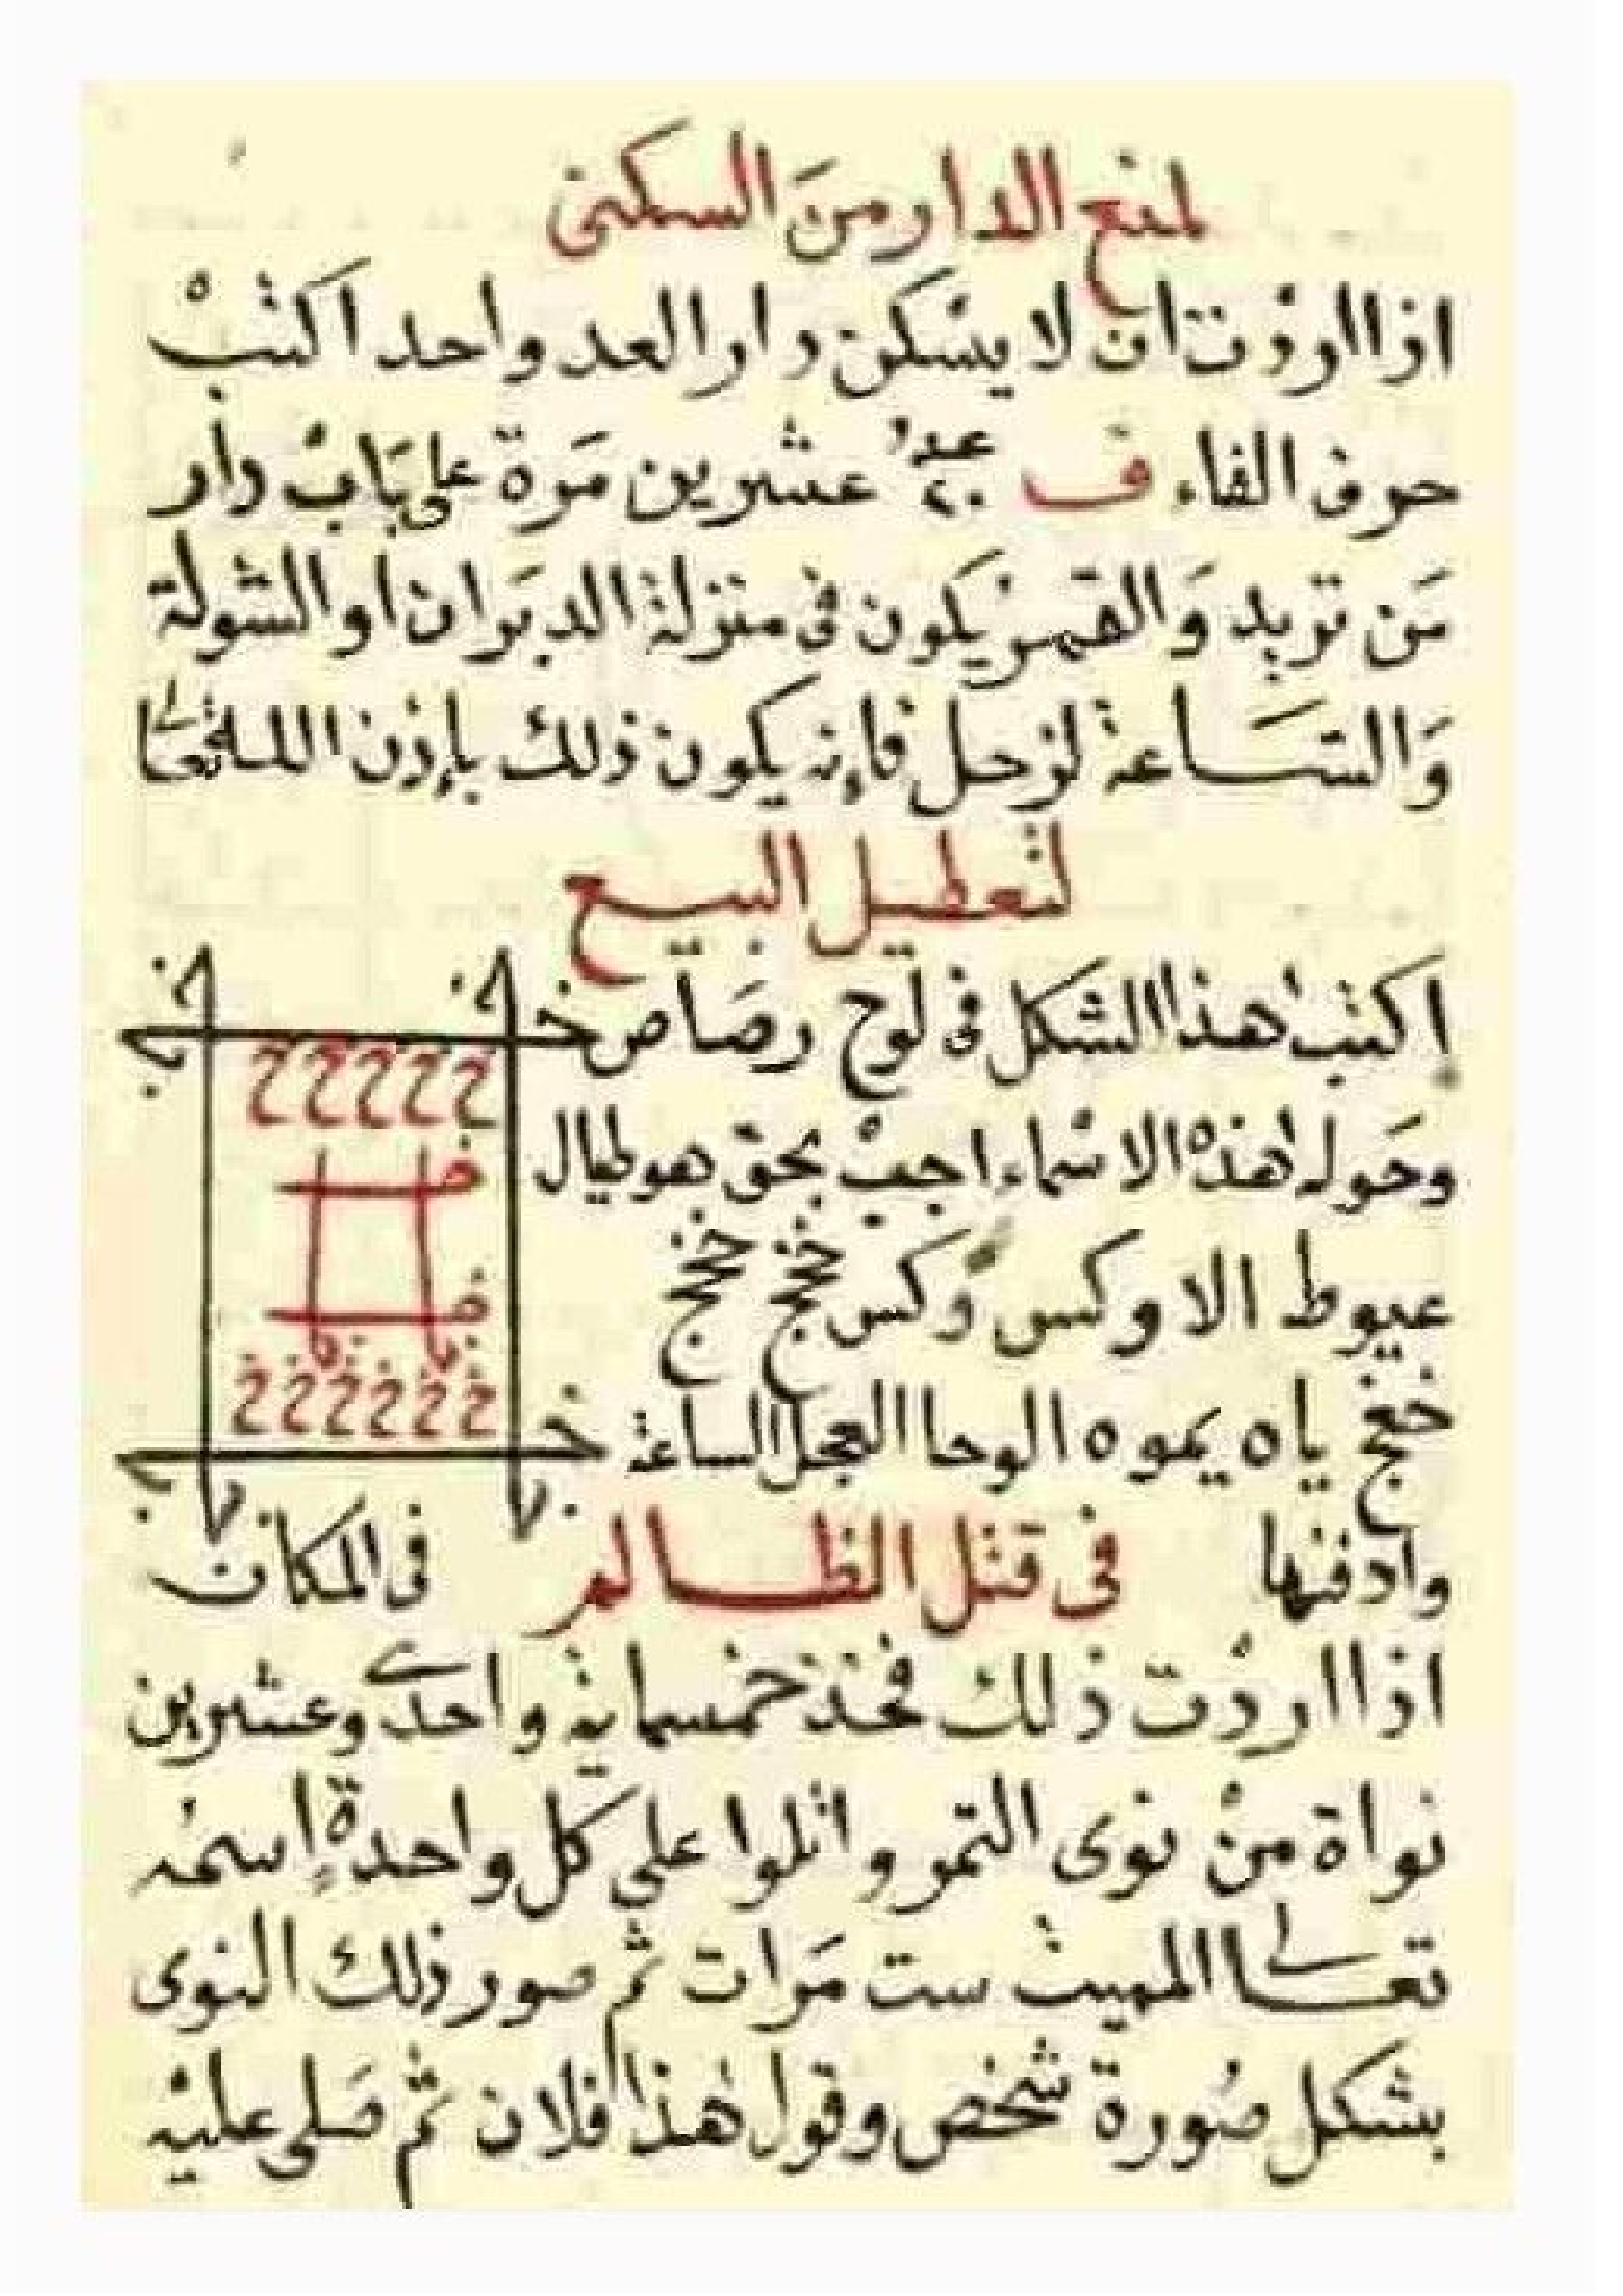 لمنع الدار منَ السكنى
اذا اردْت ان لا يسْكن دار العد واحد اكتبْ
حرف الفاء ف عدد ٢٠ عشرين مَرة على بَابْ دار
مَن تريد وَالقمر يَكون فى منزلة الدبَران او الشولة
وَالسَّاعة لزحل فإنه يكون ذلك بإذن الله تعالى
لتعطيل البيع
اكتب هذا الشكل فى لوح رصَاص
وحَوله هذه الاسماء اجبْ بحق هوطيال
عيوط الا وكس وَكس خخج خخج
خخج ياه يموه الوحا العجل الساعة
وادفنها فى المكان
فى قتل الظالم
اذا اردْت ذلك فخذ خمسماية واحدى وعشرين
نواة منْ نوى التمر واتلوا على كل واحدةٍ إسمُه
تعالى المميت ست مَرات ثم صور ذلك النوى
بشكل صُورة شخص وقول هذا فلان ثم صَلى عليْه